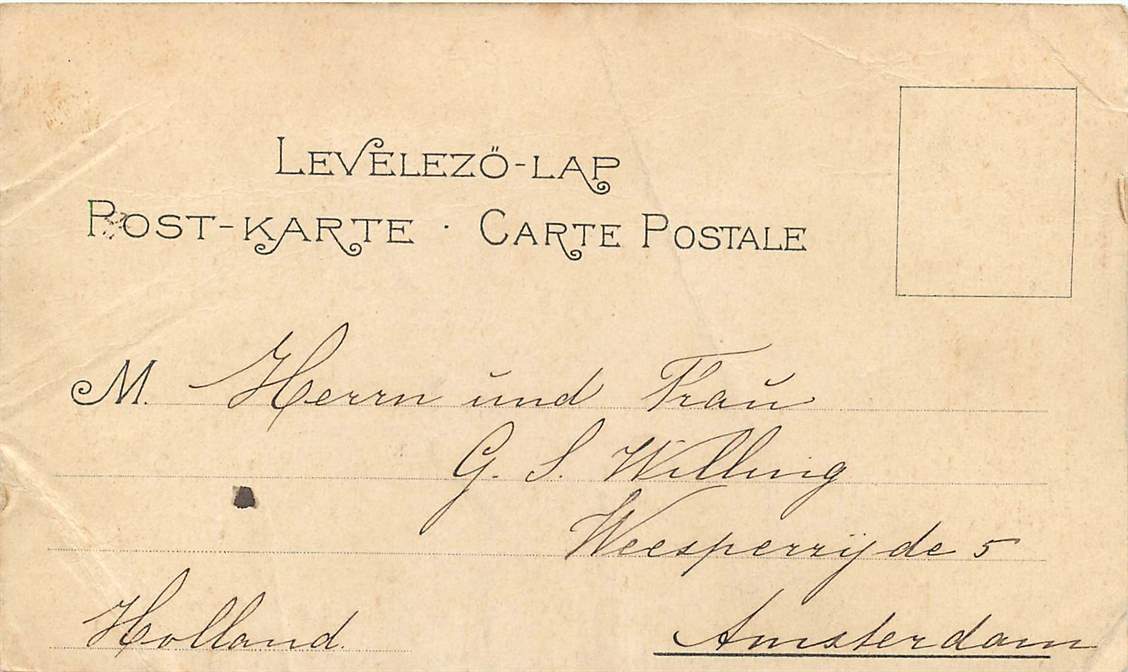 LEVELEZŐ-LAP
POST-KARTE · CARTE POSTALE
M. Herrn und Frau
G. S. Willing
Weesperzijde 5
Holland. Amsterdam